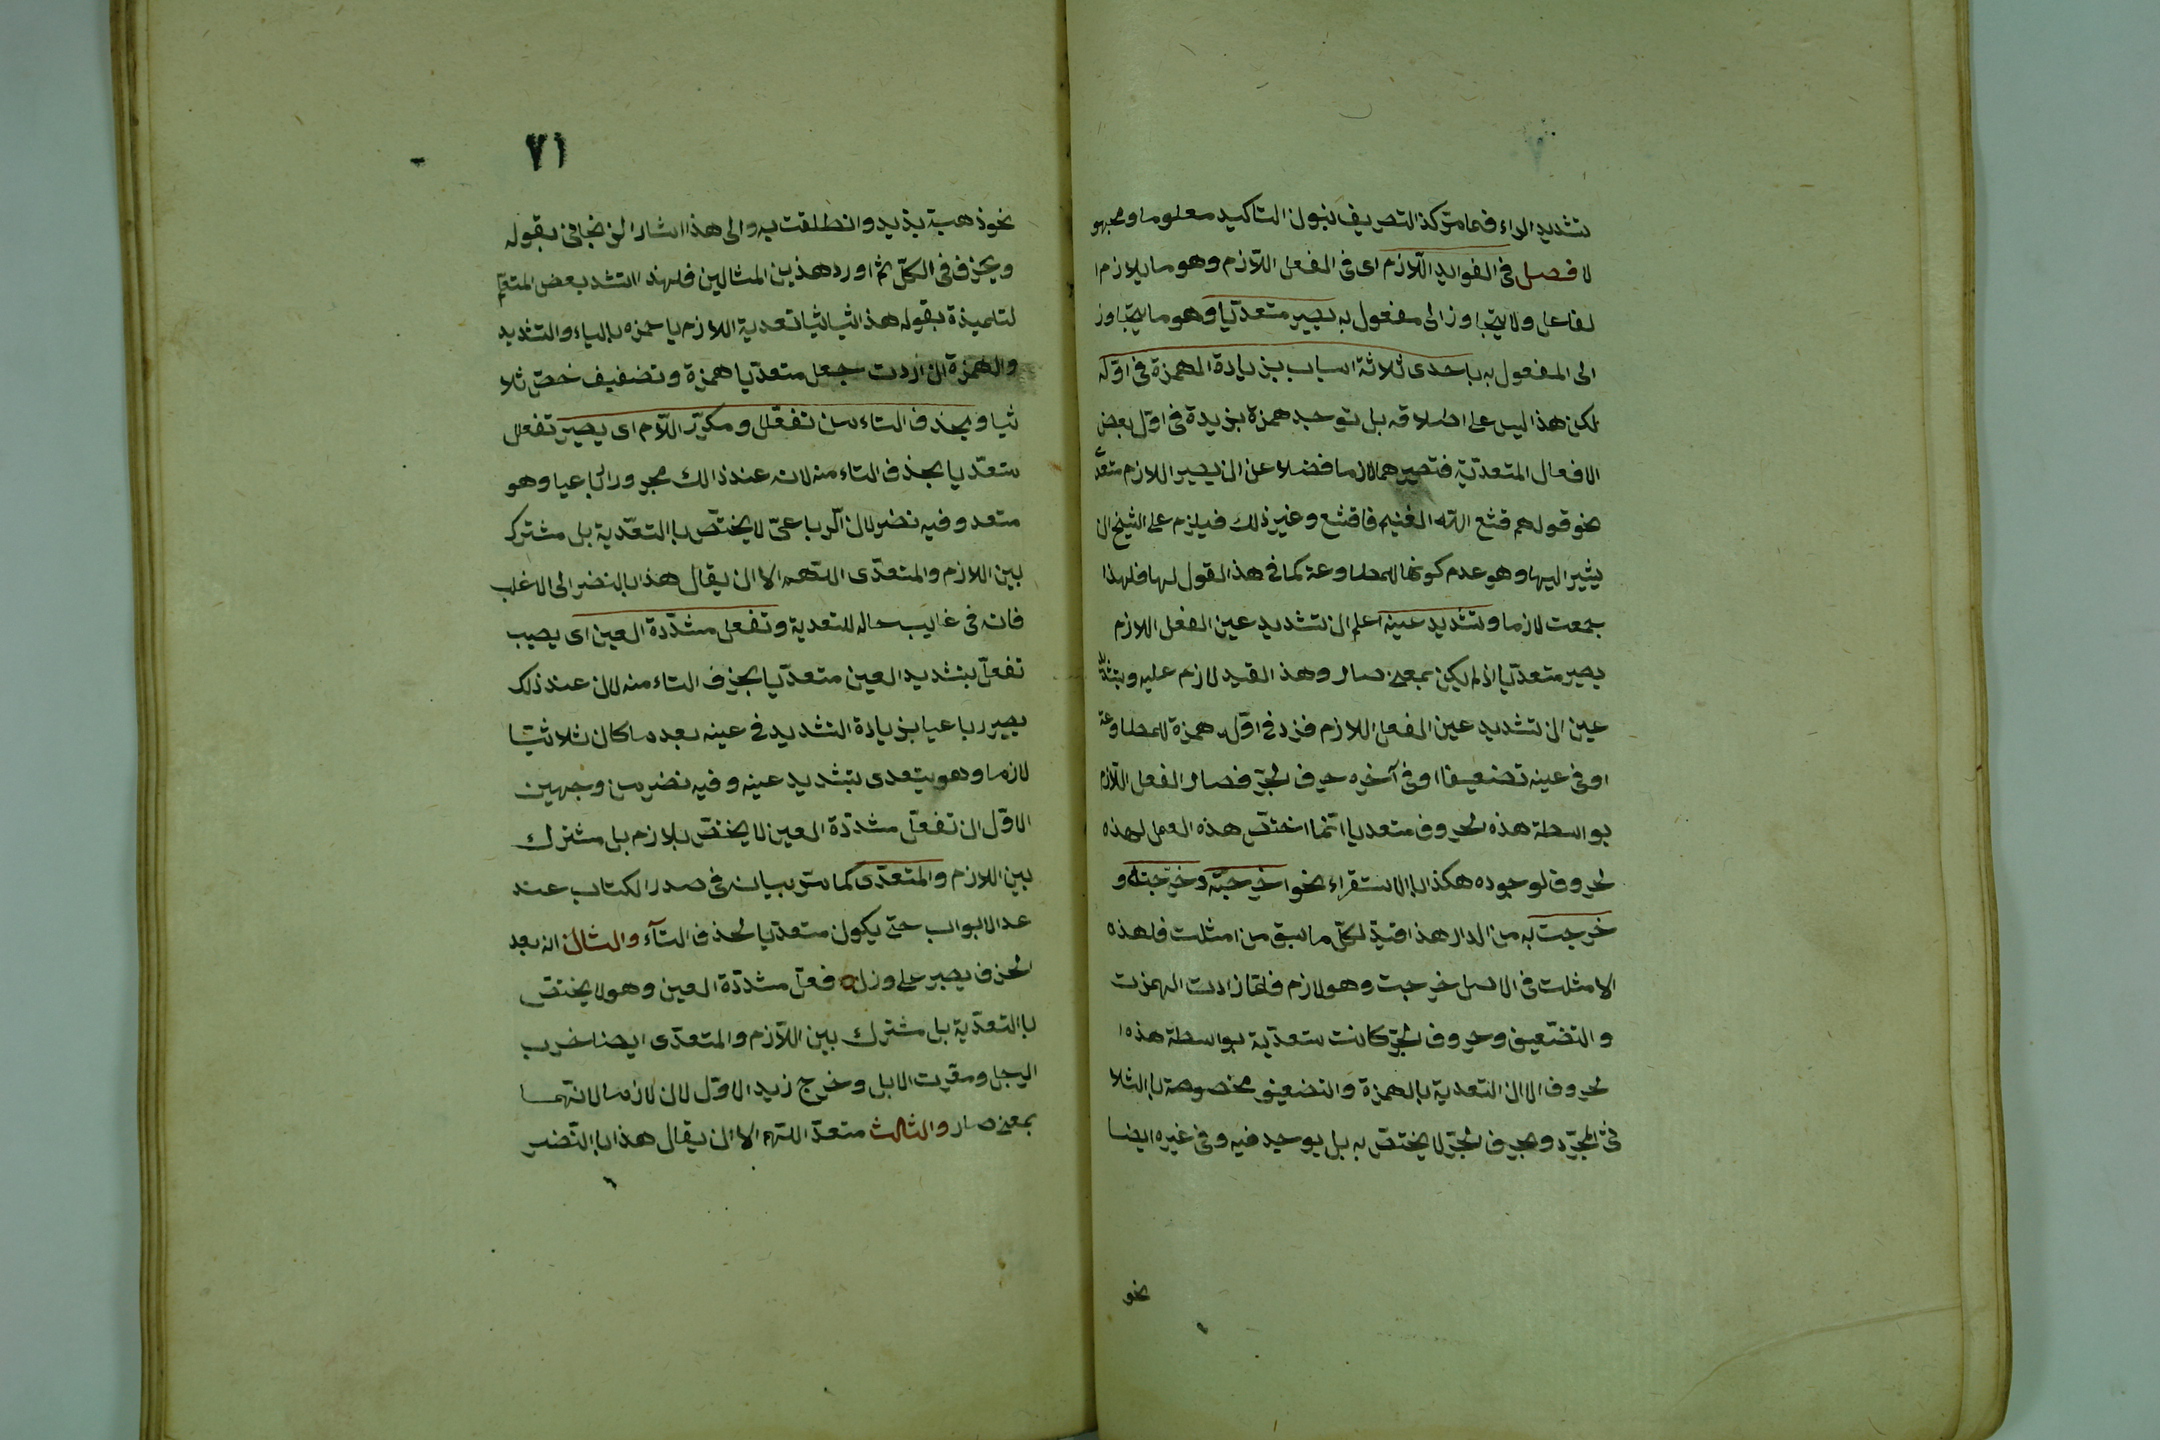 بتشديد الراء فيها مر كذا التصريف بنون التاكيد معلوما ومجهو
لا فصل فى الفوايد اللازم اى فى الفعل اللازم وهو ما يلازم ا
لفاعل ولا يتجاوز الى مفعول به يصير متعديا وهو ما يتجاوز
الى المفعول به باحدى ثلاثة اسباب بزيادة الهمزة فى اوله
لكن هذا ليس على اطلاقه بل توجد همزة بزيدة فى اول بعض
الافعال المتعدية فتصيرهما لازما فضلا عن ان يصير اللازم متعد
نحو قولهم قشع الله الغيم فاقشع وغير ذلك فيلزم على الشيخ ان
يشير اليها وهو عدم كونها للمطاوعة كما فى هذا القول لها فلهذا
لازما وتشديد عينه اعلم ان تشديد عين الفعل اللازم
يصير متعديا اذا لم يكن بمعنى صار وهذا القيد لازم عليه
عين ان تشديد عين الفعل اللازم فزد فى اوله همزة للمطاوعة
او فى عينه تضعيفا او فى آخره حرف الجر فصار الفعل اللازم
بواسطة هذه الحروف متعديا انما اختص هذه العمل لهذه
الحروف لوجوده هكذا بالاستقراء نحو اخرجته وخرجته و
خرجت به من الدار هذا قيد لكل ما سبق من امثلت فلهذه
الامثلت فى الاصل خرجت وهو لازم فلما زادت الهمزت
والتضعيف وحروف الجر كانت متعدية بواسطة هذه ا
لحروف الا ان التعدية بالهمزة والتضعيف مخصوصة بالثلا
ثى المجرد وبحرف الجر لا يختص به بل يوجد فيه وفى غيره ايضا
نحو
٧١
نحو ذهبت بزيد وانطلقت به والى هذا اشار الزنجانى بقوله
وبحرف فى الكل ثم اورد هذين المثالين فلهذا انشد بعض
لتلميذه بقوله هذا تعدية اللازم يا حمزه بالباء والتشديد
والهمزة ان اردت جعل متعديا همزة وتضعيف خص ثلا
ثيا وبحذف التاء من تفعلل ومكرر اللام اى يصير تفعلل
متعديا بحذف التاء منه لانه عند ذالك مجرورا رباعيا وهو
متعد وفيه نضر لان الرباعى لا يختص باالتعدية بل مشترك
بين اللازم والمتعدى اللهم الا ان يقال هذا بالنضر الى الاغلب
فانه فى غايب حاله للتعدية وتفعل مشددة العين اى يصيب
تفعل بتشديد العين متعديا بحذف التاء منه لان عند ذلك
يصير رباعيا بزيادة التشديد فى عينه بعد ما كان ثلاثيا
لازما وهو يتعدى بتشديد عينه وفيه نضر من وجهين
الاول ان تفعل مشددة العين لا يختص بلازم بل مشترك
بين اللازم والمتعدى كما مر بيانه فى صدر الكتاب عند
عد الابواب حتى يكون متعديا لحذف التآء والثان انه بعد
الحذف يصير على وزن فعل مشددة العين وهو لا يختص
باالتعدية بل مشترك بين اللازم والمتعدى ايضا
الرجل الابل وخرج زيد الاول لان لازما لانهما
بمعنى صار والثالث متعد اللهم الا ان يقال هذا باالنضر